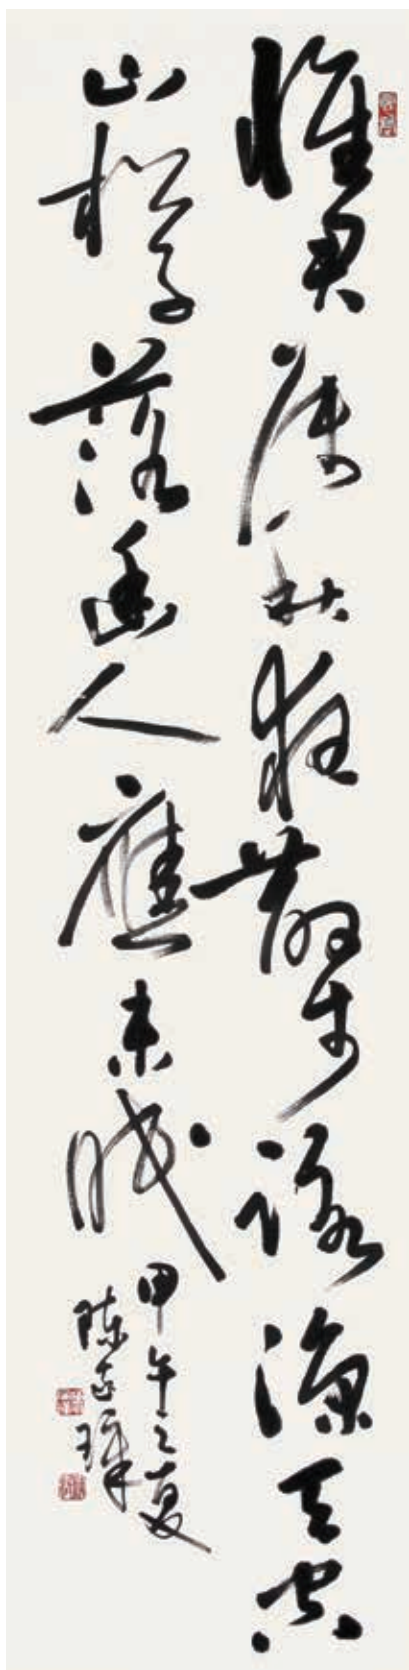 懷君属秋夜散步詠涼天空
山松子落幽人應未眠
甲午之夏
陳璋